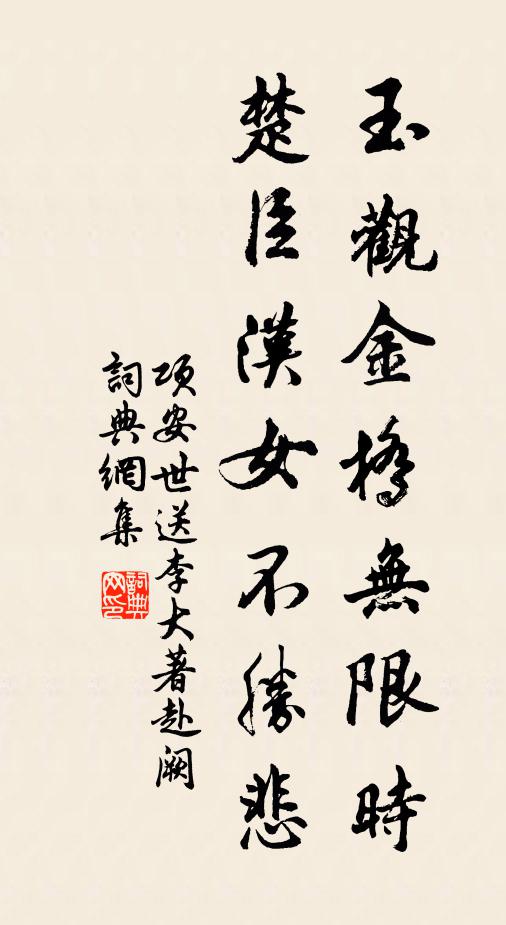 玉觀金橋無限時
楚臣漢女不勝悲
項安世送李大著赴阙
詞典網集
詞典网印